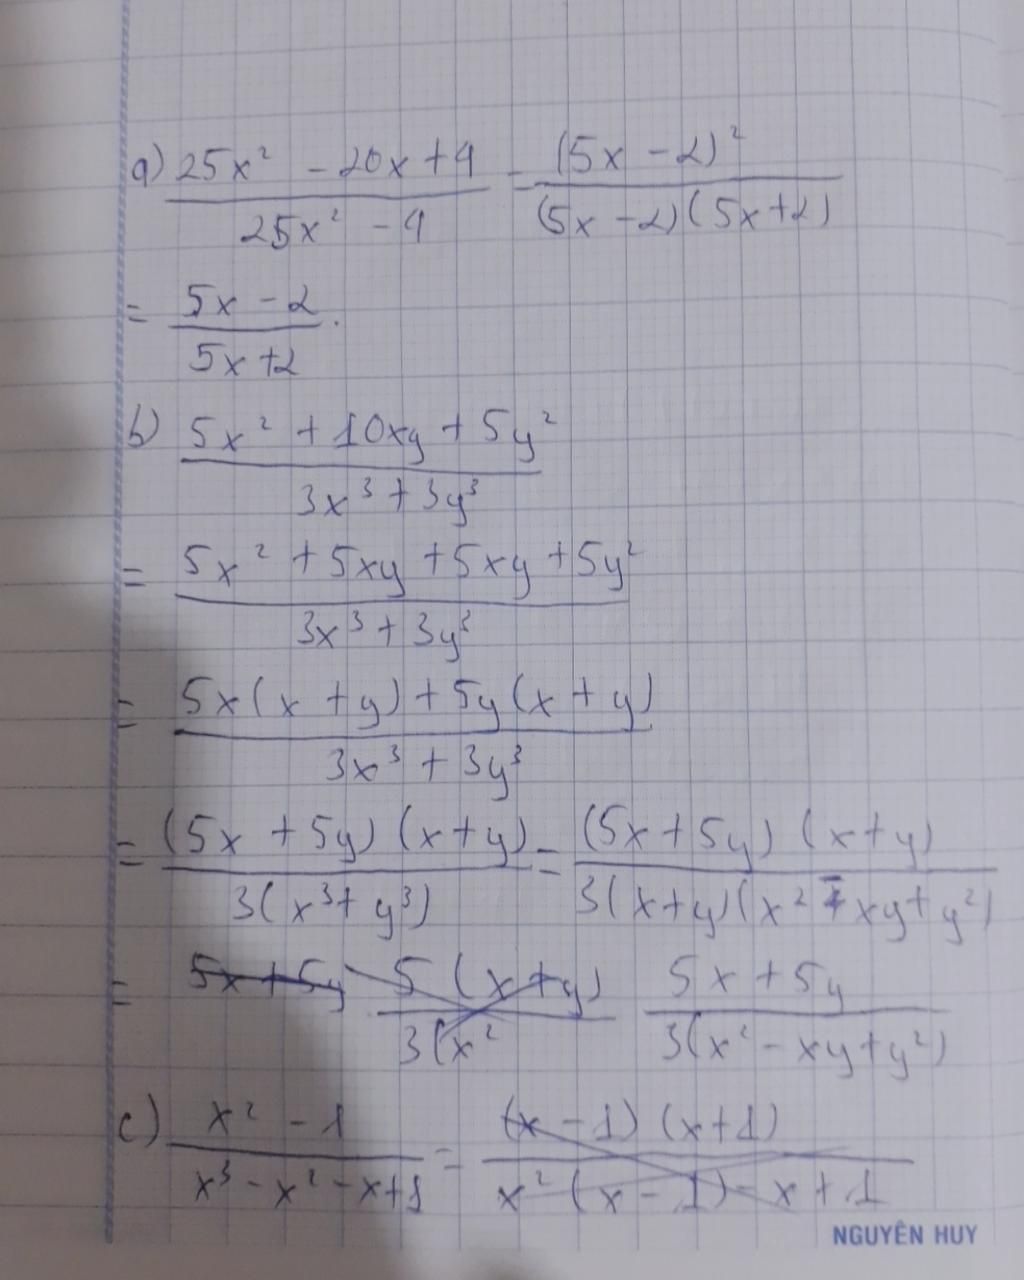 a) (25x² - 20x + 4)/(25x² - 4) = (5x - 2)²/((5x - 2)(5x + 2))
= (5x - 2)/(5x + 2).
b) (5x² + 10xy + 5y²)/(3x³ + 3y³)
= (5x² + 5xy + 5xy + 5y²)/(3x³ + 3y³)
= (5x(x + y) + 5y(x + y))/(3x³ + 3y³)
= ((5x + 5y)(x + y))/(3(x³ + y³)) = ((5x + 5y)(x + y))/(3(x + y)(x² - xy + y²))
= 5x + 5y 5(x + y)/(3(x² (5x + 5y)/(3(x² - xy + y²))
c) (x² - 1)/(x³ - x² - x + 1) = ((x - 1)(x + 1))/(x²(x - 1) - x + 1)
NGUYÊN HUY